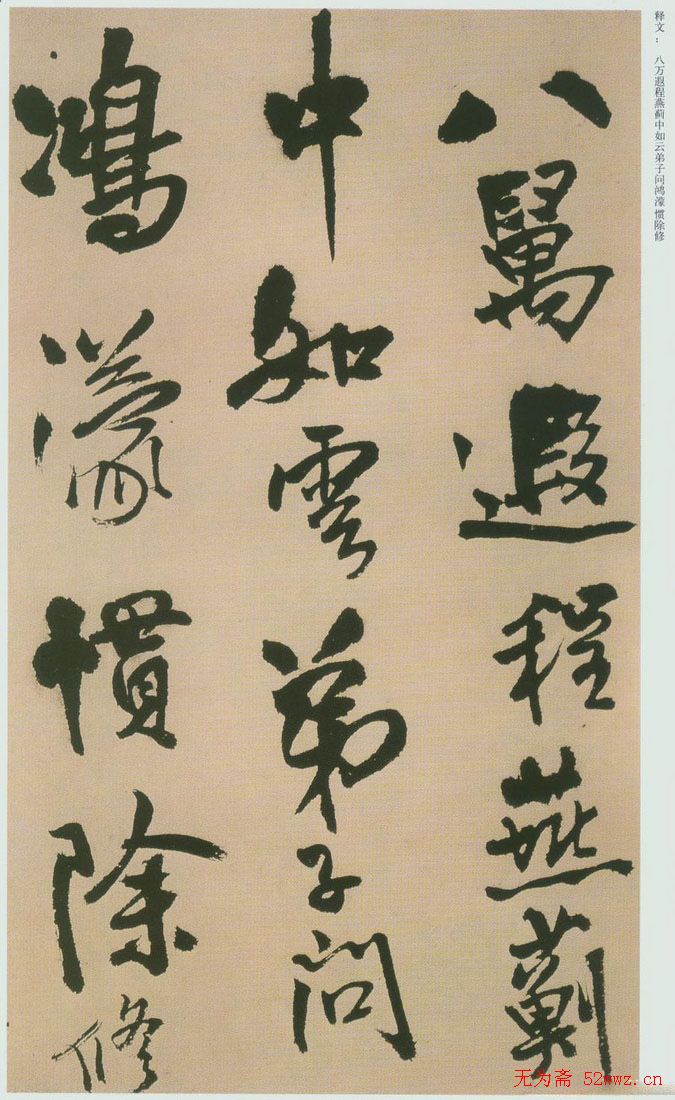 八萬遐程燕薊
中如雲弟子問
鴻濛慣除修
释文：八万遐程燕蓟中如云弟子问鸿濛惯除修
无为斋 52wwz.cn